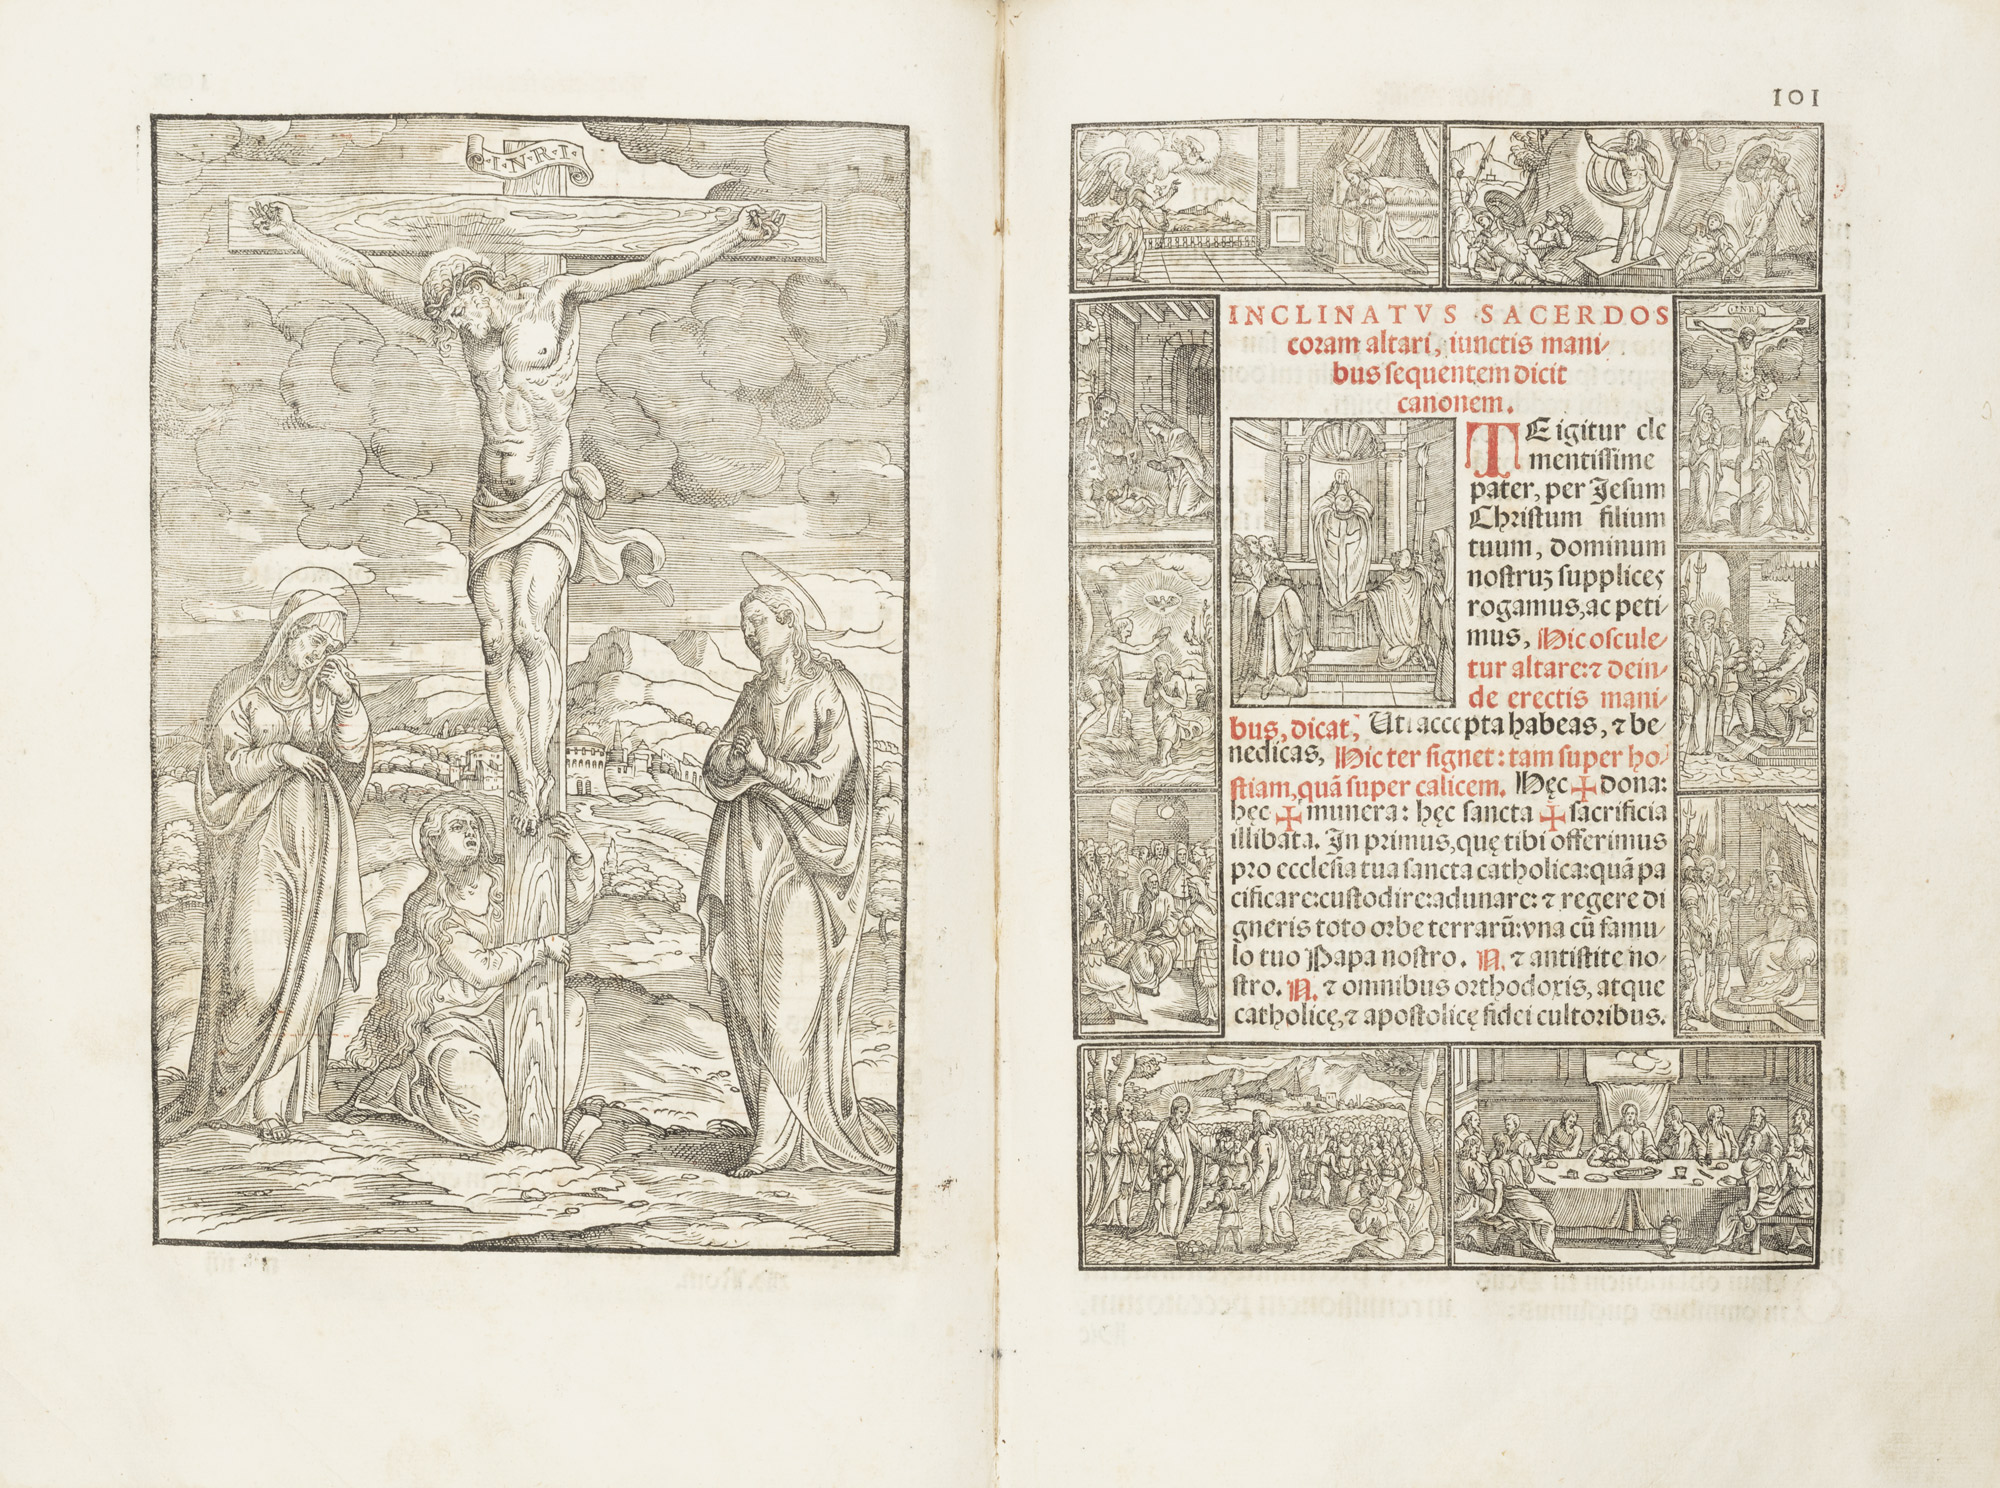 ·I·N·R·I·
101
INCLINATVS SACERDOS
coram altari, iunctis mani-
bus sequentem dicit
canonem.
TE igitur cle
mentissime
pater, per Jesum
Christum filium
tuum, dominum
nostruꝫ supplices
rogamus, ac peti-
mus, Hic oscule-
tur altare: ⁊ dein-
de erectis mani-
bus, dicat, Uti accepta habeas, ⁊ be-
nedicas, Hic ter signet: tam super ho-
stiam, quã super calicem. Hęc ✠ dona:
hęc ✠ munera: hęc sancta ✠ sacrificia
illibata. In primus, quę tibi offerimus
pro ecclesia tua sancta catholica: quã pa
cificare: custodire: adunare: ⁊ regere di
gneris toto orbe terrarũ: vna cũ famu-
lo tuo Papa nostro. N. ⁊ antistite no-
stro. N. ⁊ omnibus orthodoxis, atque
catholicę, ⁊ apostolicę fidei cultoribus.